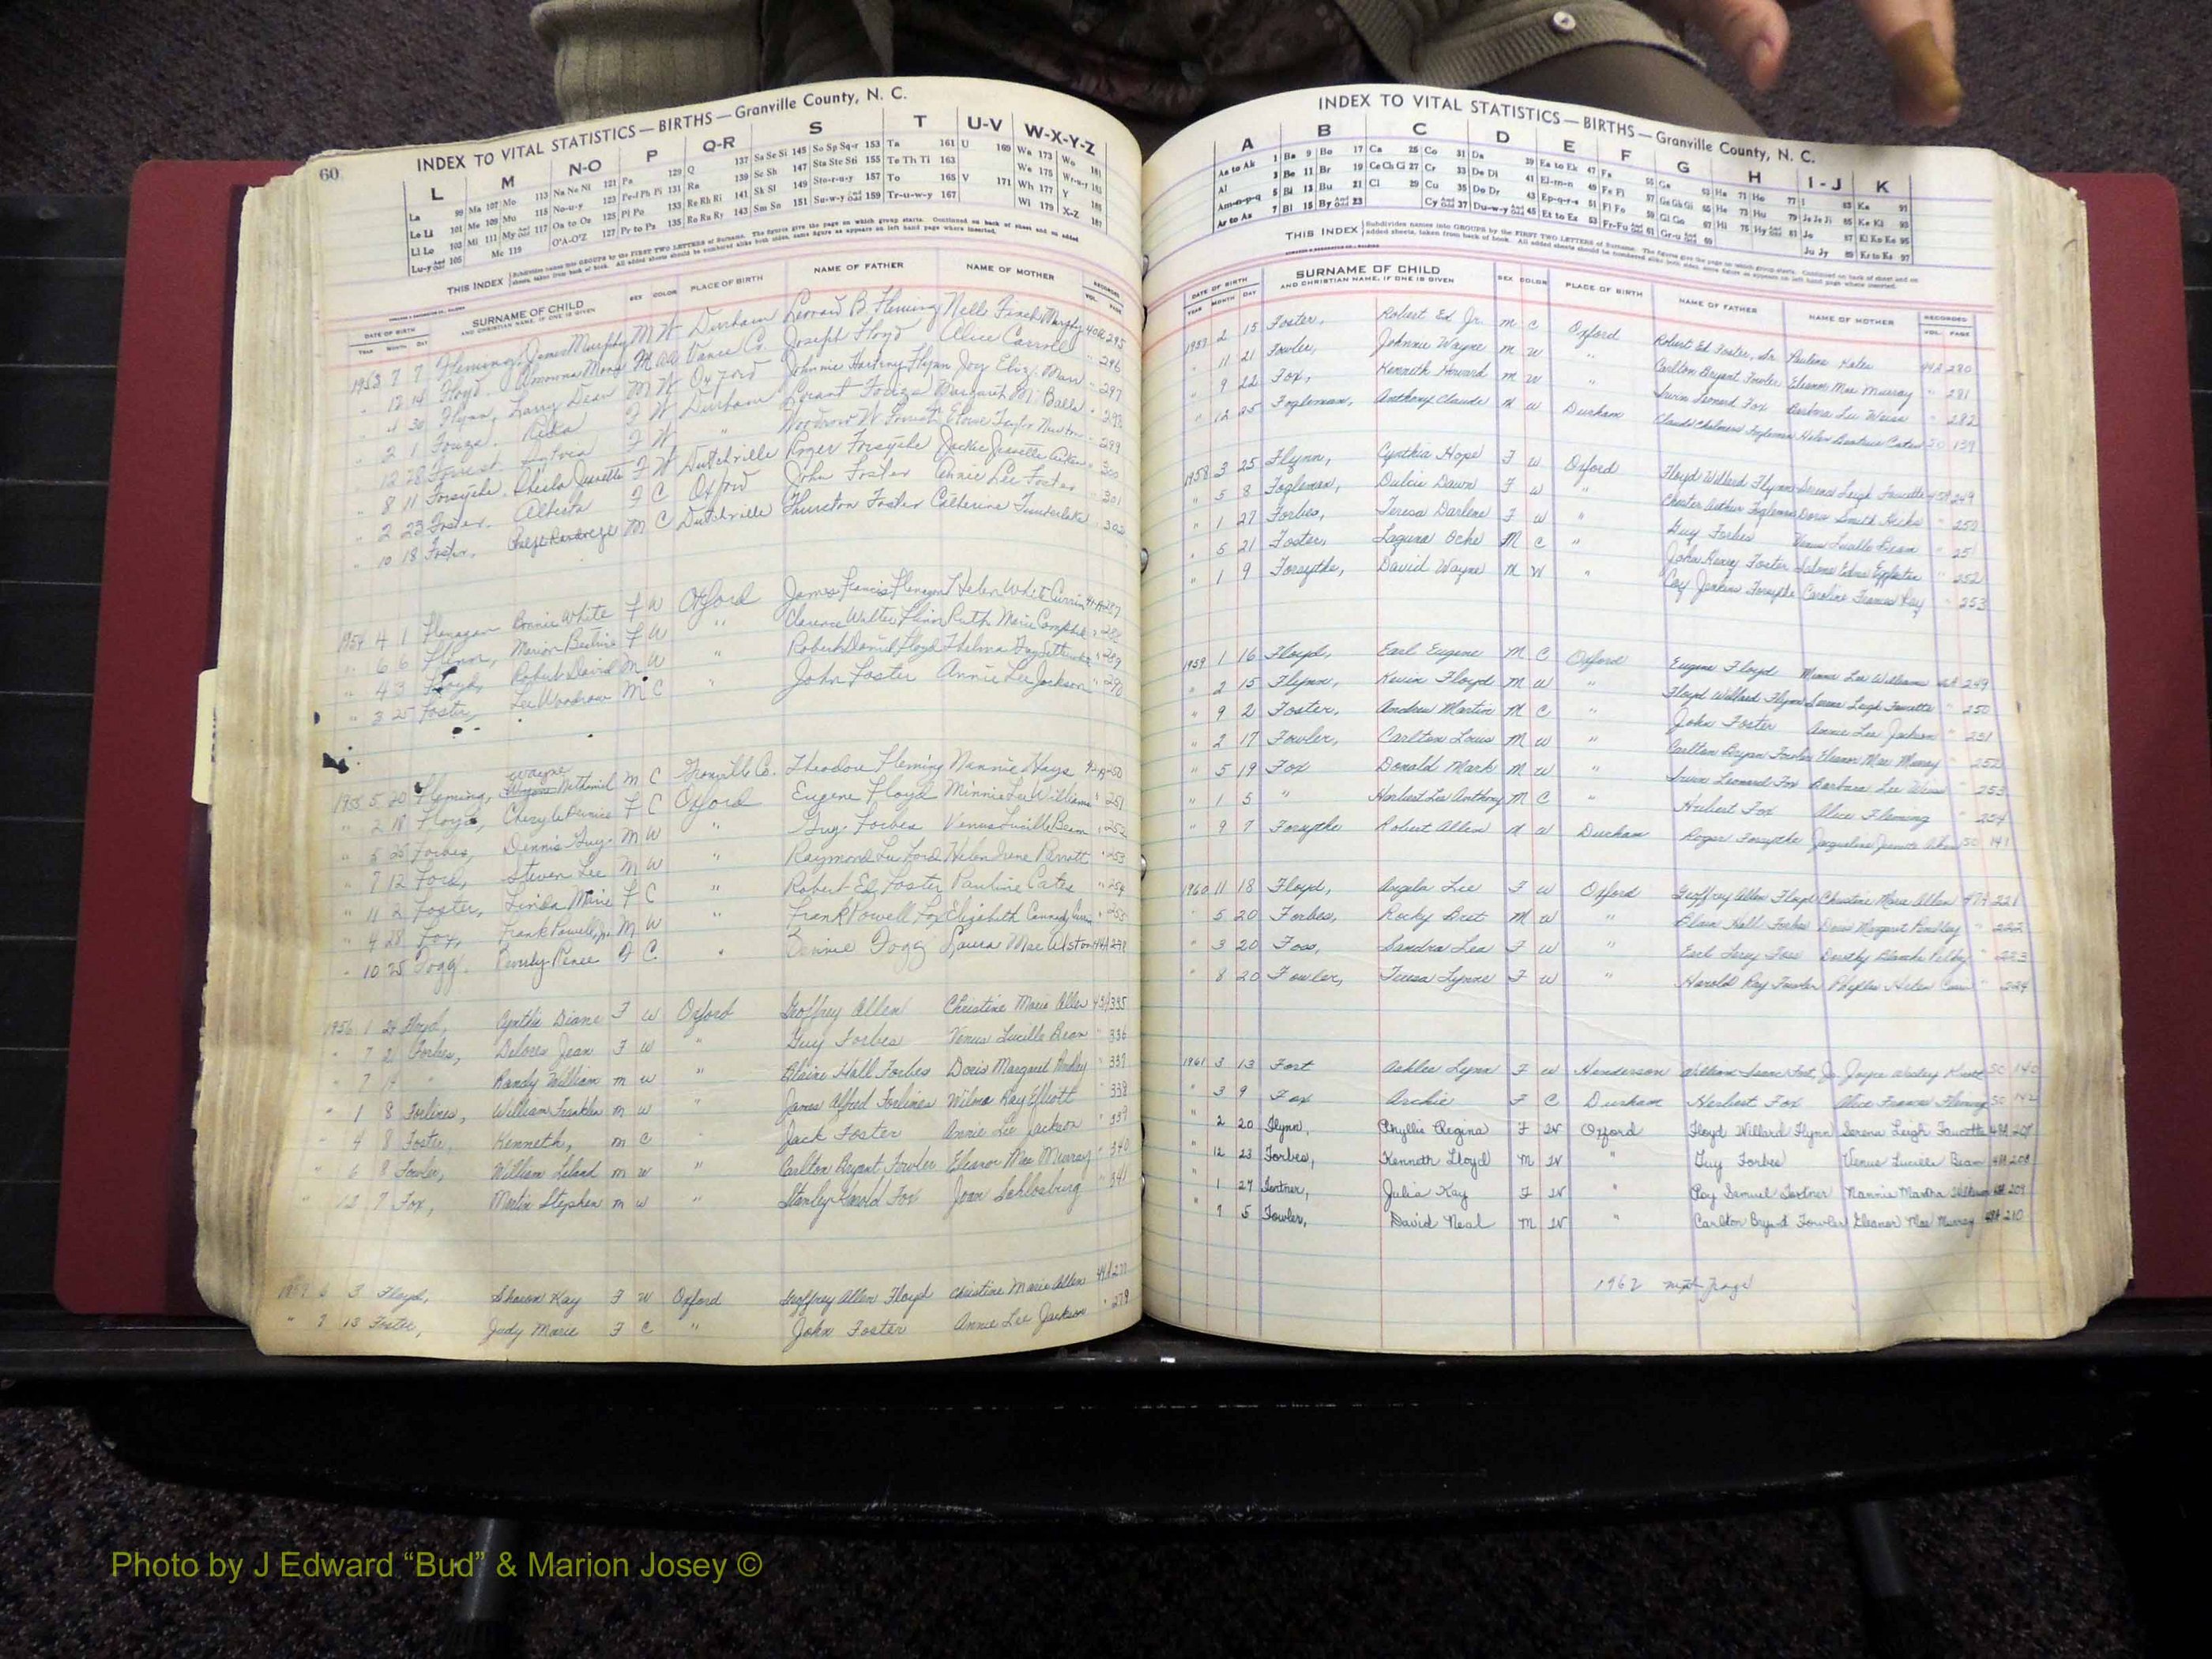 60
INDEX TO VITAL STATISTICS — BIRTHS — Granville County, N. C.
L M N-O P Q-R S T U-V W-X-Y-Z
La 99 Ma 107 Mo 113 Na Ne Ni 121 Pa 129 Q 137 Sa Se Si 145 So Sp Sq-r 153 Ta 161 U 169 Wa 173 Wo 181
Le Li 101 Me 109 Mu 115 No-u-y 123 Pe-f Ph Pi 131 Ra 139 Sc Sh 147 Sta Ste Sti 155 Te Th Ti 163 We 175 Wr-u-y 183
Ll Lo 103 Mi 111 My 117 Oa to Oz 125 Pl Po 133 Re Rh Ri 141 Sk Sl 149 Sto-r-u-y 157 To 165 V 171 Wh 177 Y 185
Lu-y 105 Mc 119 O'A-O'Z 127 Pr to Pz 135 Ro Ru Ry 143 Sm Sn 151 Su-w-y 159 Tr-u-w-y 167 Wi 179 X-Z 187
THIS INDEX Subdivides names into GROUPS by the FIRST TWO LETTERS of Surname. The figures give the page on which group starts. Continued on back of sheet and on added sheets, taken from back of book. All added sheets should be numbered alike both sides, same figure as appears on left hand page where inserted.
DATE OF BIRTH YEAR MONTH DAY SURNAME OF CHILD AND CHRISTIAN NAME, IF ONE IS GIVEN SEX COLOR PLACE OF BIRTH NAME OF FATHER NAME OF MOTHER RECORDED VOL. PAGE
1953 7 7 Fleming, James Murphy M W Durham Leonard B. Fleming Nelle Finch Murphy 40A 295
" 12 14 Floyd Vance Co. Joseph Floyd Alice Carroll " 296
" 4 30 Flynn, Larry Dean M W Oxford " 297
" 2 1 F W Durham " 298
" 12 28 Forrest, F W " " 299
" 8 11 Forsythe, F W Dutchville Roger Forsythe " 300
" 2 23 Foster, Alberta F C Oxford John Foster Annie Lee Foster " 301
" 10 18 Foster, M C Dutchville Thurston Foster Catherine Timberlake " 302
1954 4 1 Flanagan Bonnie White F W Oxford Helen White Currin 41A 287
" 6 6 Flinn, F W " Clarence Walter Flinn Ruth Marie
" 4 3 Floyd, Robert David M W " Robert Daniel Floyd Thelma
" 3 25 Foster, Lee Woodrow M C " John Foster Annie Lee Jackson " 290
1955 5 20 Fleming, Wayne Nathaniel M C Granville Co. Theodore Fleming Nannie Hays 42A 250
" 2 18 Floyd, F C Oxford Eugene Floyd Minnie Lee Williams " 251
" 5 Forbes, Dennis Guy M W " Guy Forbes Venus Lucille Beam " 252
" 7 12 Ford, Steven Lee M W " Raymond Lee Ford Helen Irene Barrett " 253
" 11 2 Foster, Linda Marie F C " Robert Ed Foster Pauline Cates " 254
" 4 28 Fox, Frank Powell, Jr. M W " Frank Powell Fox Elizabeth Cannady Currin " 255
" 10 25 Fogg Beverly Renee F C " Bennie Fogg Laura Mae Alston
1956 1 Floyd, Cynthia Diane F W Oxford Geoffrey Allen Christine Marie Allen 335
" 7 2 Forbes, Delores Jean F W " Guy Forbes Venus Lucille Bean " 336
" 7 " Randy William M W " Blaine Hall Forbes Doris Margaret " 337
" 1 8 Forlines, William Franklin M W " James Alfred Forlines Wilma Ray Elliott " 338
" 4 8 Foster, Kenneth, M C " Jack Foster Annie Lee Jackson " 339
" 6 8 Fowler, William Leland M W " Carlton Bryant Fowler Eleanor Mae Murray " 340
" 12 7 Fox, Martin Stephen M W " Stanley Harold Fox Joan Schlosburg " 341
1957 3 Floyd, Sharon Kay F W Oxford Geoffrey Allen Floyd Christine Marie Allen 44A
" 9 13 Foster, Judy Marie F C " John Foster Annie Lee Jackson " 279
INDEX TO VITAL STATISTICS — BIRTHS — Granville County, N. C.
A B C D E F G H I-J K
Aa to Ak 1 Ba 9 Bo 17 Ca 25 Co 31 Da 39 Ea to Ek 47 Fa 55 Ga 63 Ha 71 Ho 77 I 83 Ka 91
Al 3 Be 11 Br 19 Ce Ch Ci 27 Cr 33 De Di 41 El-m-n 49 Fe Fi 57 Ge Gh Gi 65 He 73 Hu 79 Ja Je Ji 85 Ke Ki 93
Am-n-o-p-q 5 Bi 13 Bu 21 Cl 29 Cu 35 Do Dr 43 Ep-q-r-s 51 Fl Fo 59 Gl Go 67 Hi 75 Hy 81 Jo 87 Kl Kn Ko 95
Ar to Az 7 Bl 15 By 23 Cy 37 Du-w-y 45 Et to Ez 53 Fr-Fu 61 Gr-u 69 Ju Jy 89 Kr to Kz 97
THIS INDEX Subdivides names into GROUPS by the FIRST TWO LETTERS of Surname. The figures give the page on which group starts. Continued on back of sheet and on added sheets, taken from back of book. All added sheets should be numbered alike both sides, same figure as appears on left hand page where inserted.
DATE OF BIRTH YEAR MONTH DAY SURNAME OF CHILD AND CHRISTIAN NAME, IF ONE IS GIVEN SEX COLOR PLACE OF BIRTH NAME OF FATHER NAME OF MOTHER RECORDED VOL. PAGE
2 15 Foster, Robert Ed Jr. M C Oxford Robert Ed Foster, Sr. Pauline 44A 280
" 11 21 Fowler, Johnnie Wayne M W " Carlton Bryant Fowler Eleanor Mae Murray " 281
" 9 22 Fox, Kenneth Howard M W " Irwin Leonard Fox Barbara Lee Weiss " 282
" 12 25 Fogleman, Anthony Claude M W Durham Claude Chalmers Fogleman Helen Beatrice Cates 50 139
1958 3 25 Flynn, Cynthia Hope F W Oxford Floyd Willard Flynn Serena Leigh Faucette 45A 249
" 5 8 Fogleman, Dulcie Dawn F W " Chester Arthur Fogleman Doris Smith Hicks " 250
" 1 27 Forbes, Teresa Darlene F W " Guy Forbes Venus Lucille Beam " 251
" 5 21 Foster, Laguna Oche M C " John Henry Foster " 252
" 1 9 Forsythe, David Wayne M W " Coy Jenkins Forsythe Caroline Frances Ray " 253
1959 1 16 Floyd, Earl Eugene M C Oxford Eugene Floyd Minnie Lee Williams 46A 249
" 2 15 Flynn, Kevin Floyd M W " Floyd Willard Flynn Serena Leigh Faucette " 250
" 9 2 Foster, Andrew Martin M C " John Foster Annie Lee Jackson " 251
" 2 17 Fowler, Carlton Louis M W " Carlton Bryan Fowler Eleanor Mae Murray " 252
" 5 19 Fox Donald Mark M W " Irwin Leonard Fox Barbara Lee Weiss " 253
" 1 5 " Herbert Lee Anthony M C " Herbert Fox Alice Fleming " 254
" 9 7 Forsythe Robert Allen M W Durham Roger Forsythe Jacqueline 50 141
1960 11 18 Floyd, Angela Lee F W Oxford Geoffrey Allen Floyd Christine Marie Allen 47A 221
" 5 20 Forbes, Rocky Bret M W " Blain Hall Forbes Doris Margaret " 222
" 3 20 Foss, Sandra Lea F W " Earl Leroy Foss Dorothy Blanche " 223
" 8 20 Fowler, Teresa Lynne F W " Harold Ray Fowler Phyllis Helen " 224
1961 3 13 Fort Ashlee Lynn F W Henderson William Isaac Fort, Jr. Joyce 50 140
" 3 9 Fox Archie F C Durham Herbert Fox Alice Frances Fleming 50 142
" 2 20 Flynn, Phyllis Regina F W Oxford Floyd Willard Flynn Serena Leigh Faucette 48A 207
" 12 23 Forbes, Kenneth Lloyd M W " Guy Forbes Venus Lucille Beam 48A 208
" 1 27 Fortner, Julia Kay F W " Roy Samuel Fortner Nannie Martha 48A 209
" 7 5 Fowler, David Neal M W " Carlton Bryant Fowler Eleanor Mae Murray 48A 210
1962 next page
Photo by J Edward “Bud” & Marion Josey ©